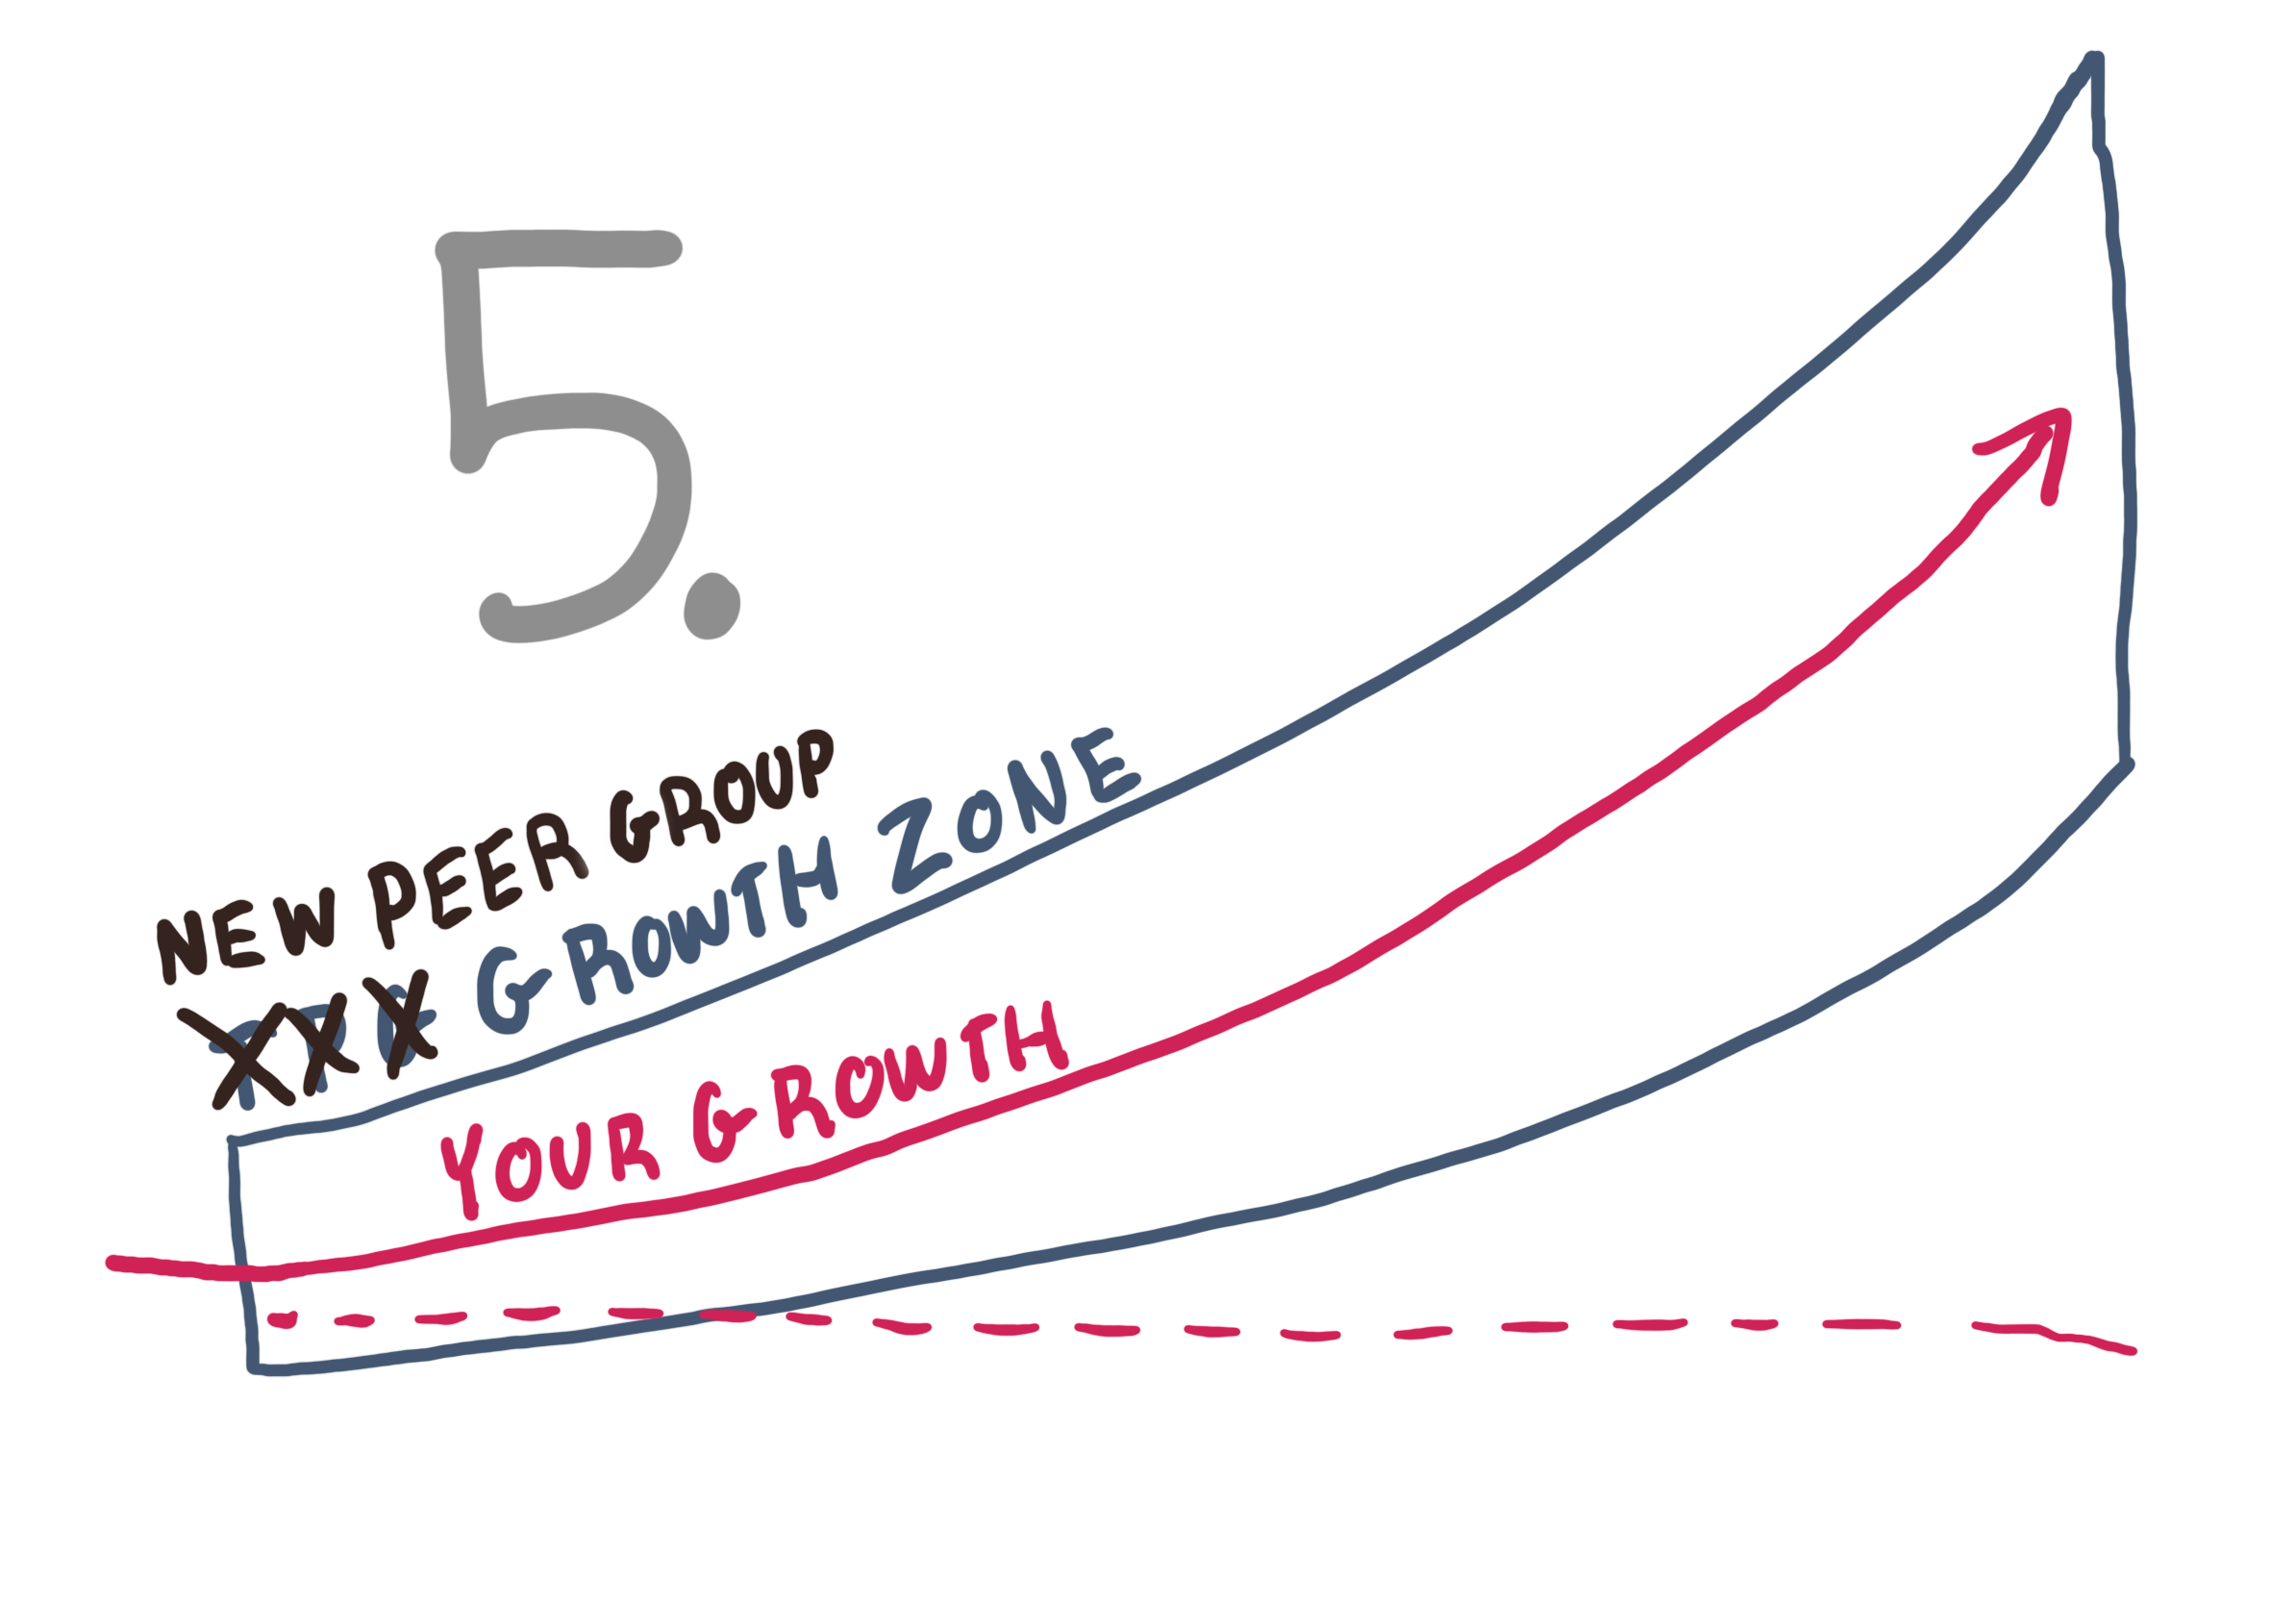 5.
NEW PEER GROUP
GROWTH ZONE
YOUR GROWTH